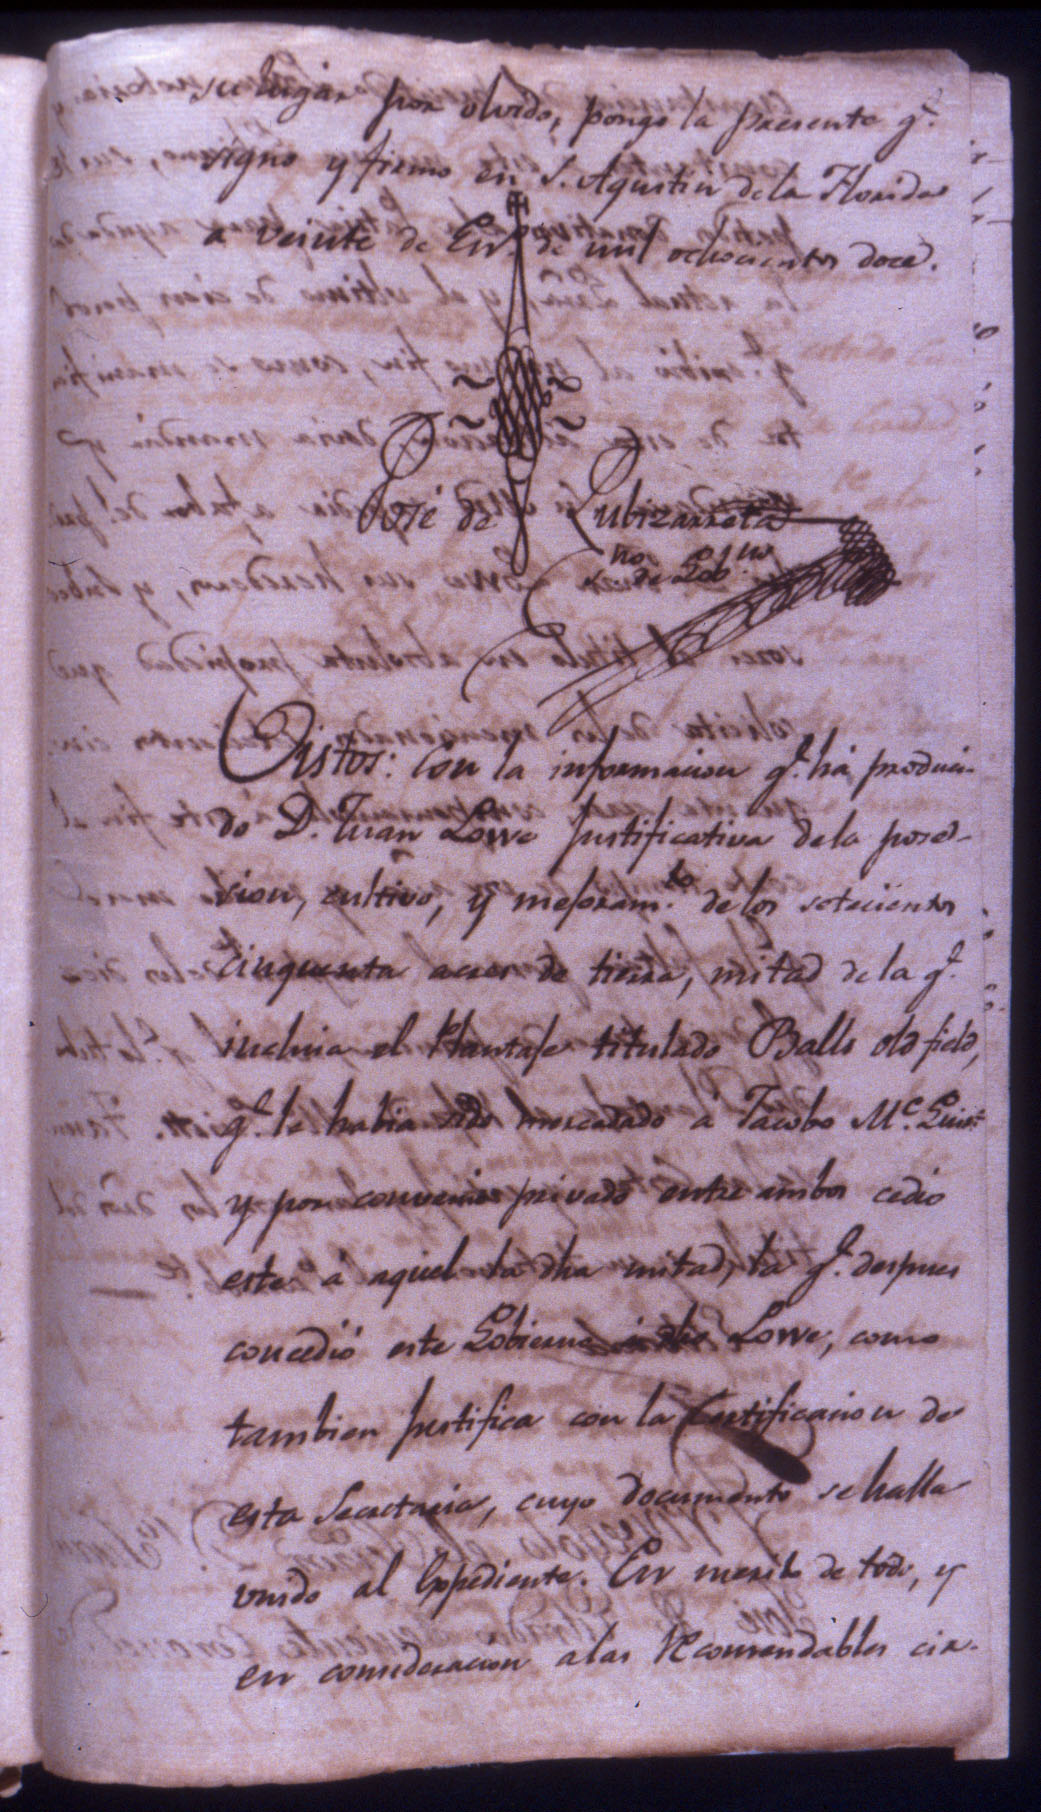 su lugar por olvido, pongo la presente q.e
signo y firmo en S. Agustin de la Florida
a veinte de En.o de mil ochocientos doce.
José de Zubizarreta
no de Gob.no
Vistos: Con la informacion q.e ha produci-
do D. Juan Lowe justificativa de la pose-
sion, cultivo, y mejoram.to de los setecientos
cinquenta acres de tierra, mitad de la q.e
incluia el Plantage titulado Balls old field,
q.e le habia sido mercedado a Jacobo Mc.
y por convenio privado entre ambos cedio
este á aquel la dha mitad, la q.e despues
concedió este Gobierno Lowe, como
tambien justifica con la Certificacion de
esta Secretaria, cuyo documento se halla
unido al Expediente. En merito de todo, y
en consideracion a las recomendables cir-